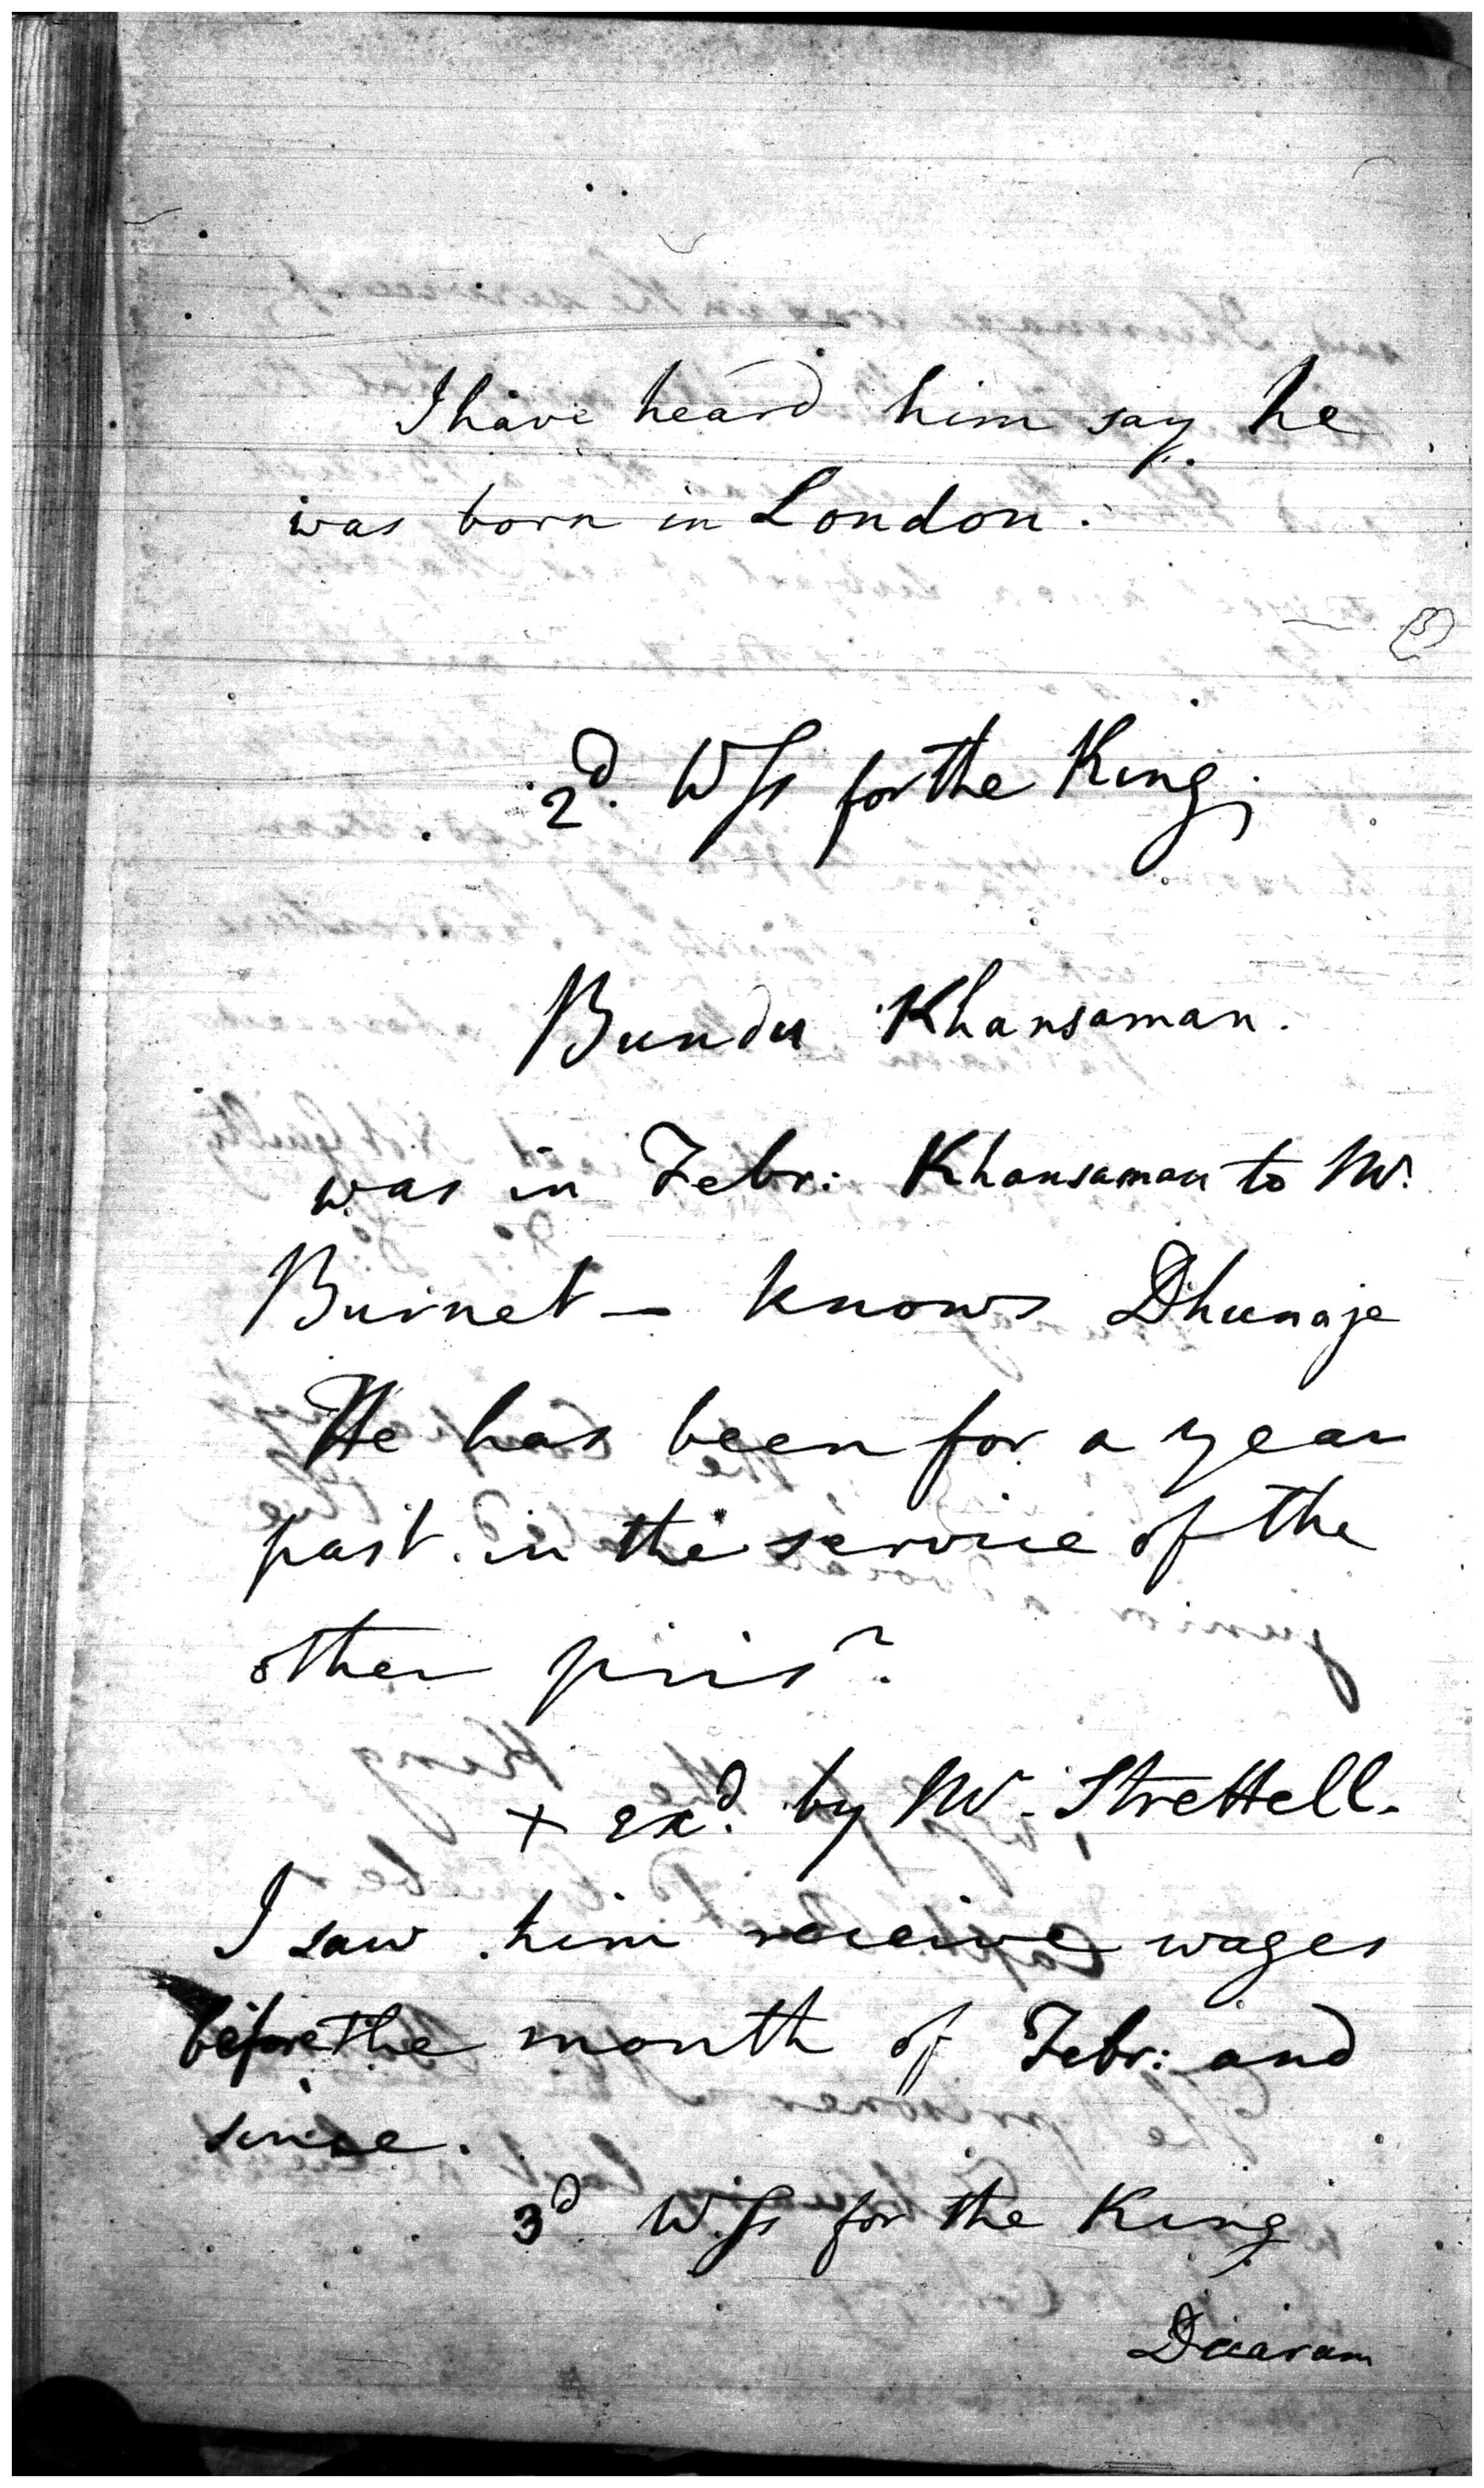 I have heard him say he
was born in London.
2d. Wss for the King.
Bundu Khansaman.
was in Febr: Khansaman to Mr.
Burnet — knows Dhunaje
He has been for a year
past in the service of the
other prisr.
+ exd. by Mr. Strettell.
I saw him receive wages
before the month of Febr: and
since.
3d. Wss for the King